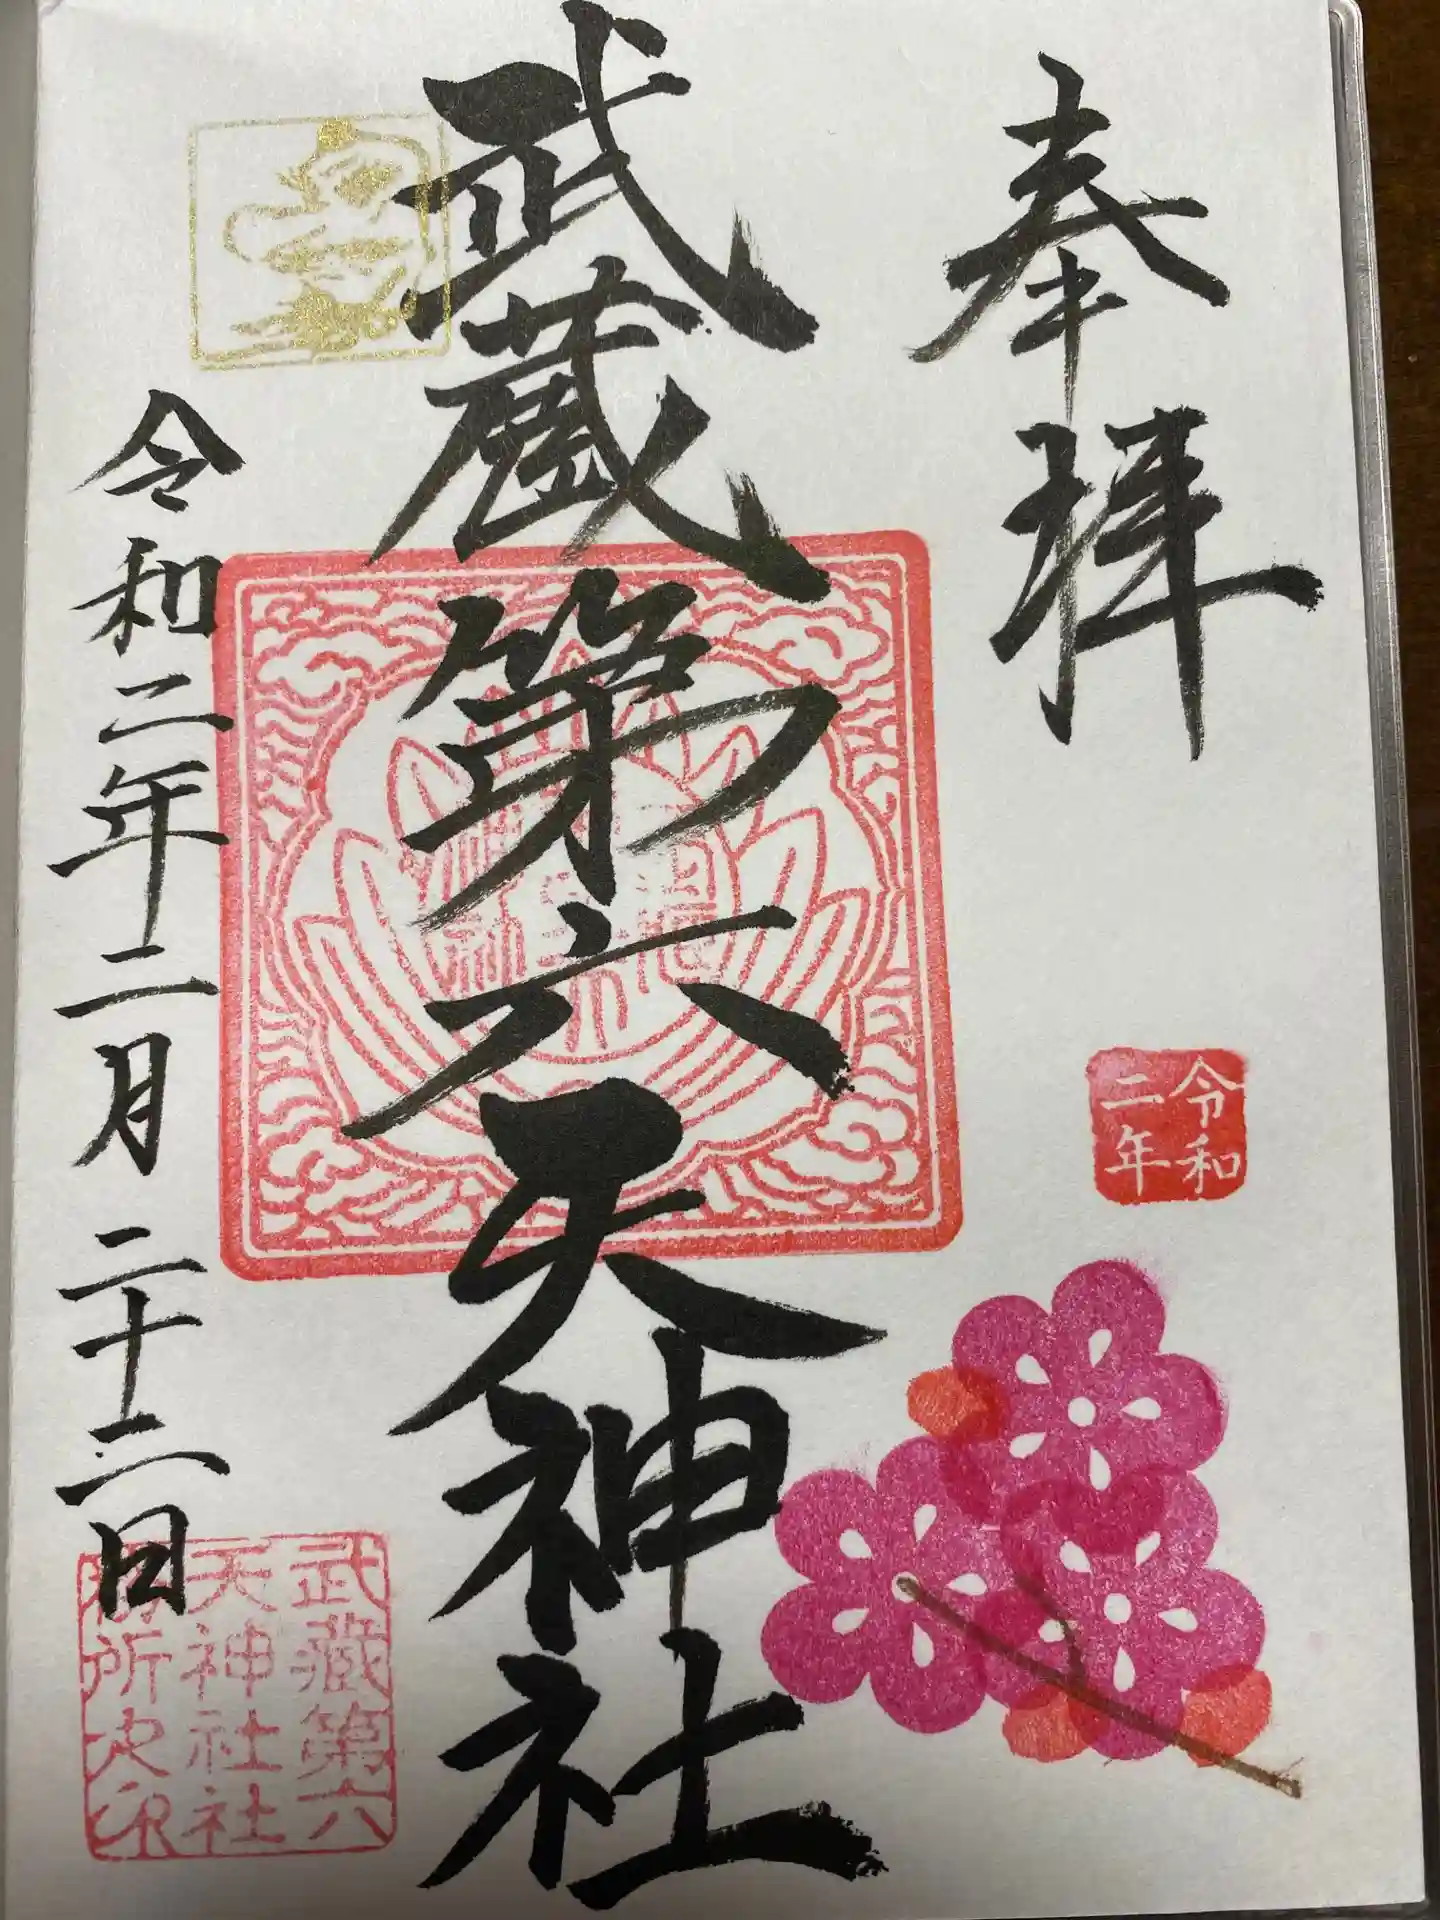 奉拝
令和
二年
武蔵第六天神社
令和二年二月二十二日
武蔵第六
天神社社
務所之印